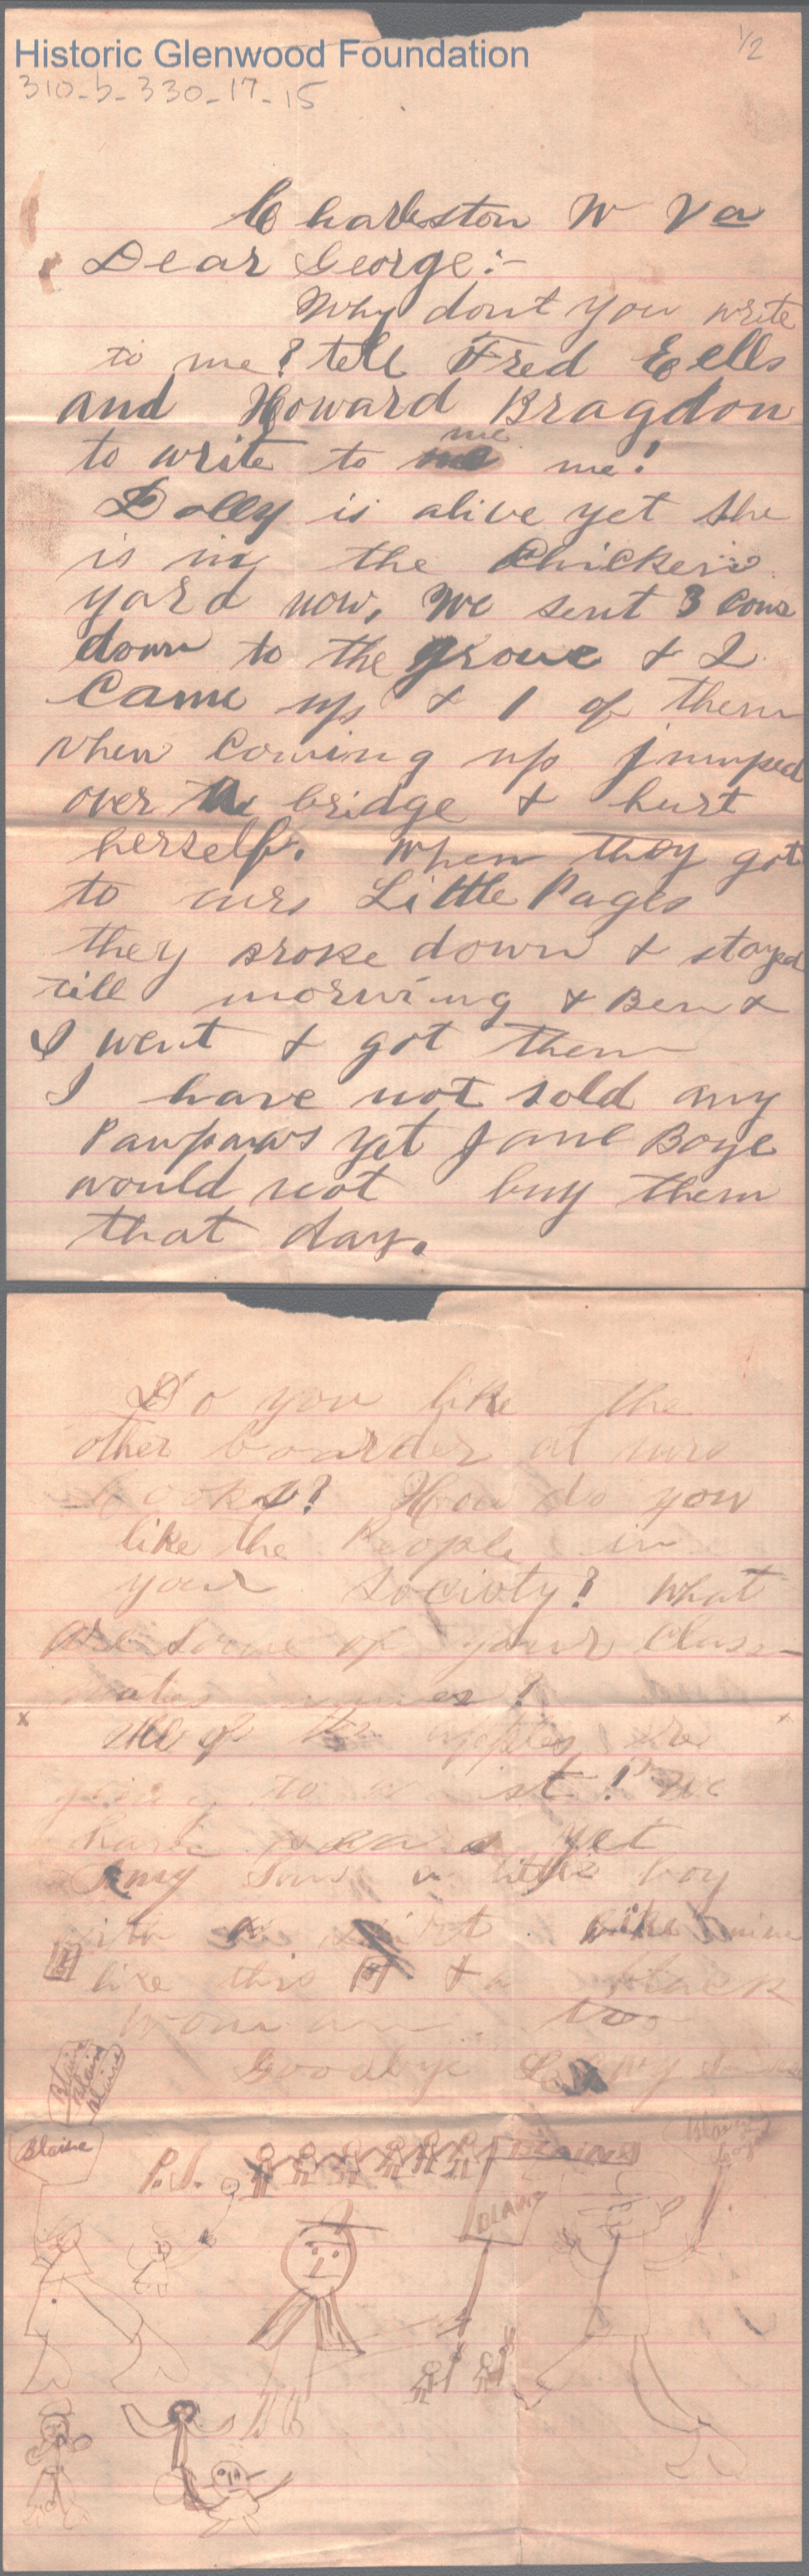 Historic Glenwood Foundation
1/2
310-b-330-17-15
Charleston W Va
Dear George:-
Why dont you write
to me? tell Fred Eells
and Howard Bragdon
to write to me me!
Dolly is alive yet she
is in the Chicken
yard now, We sent 3 Cows
down to the grove & 2
Came up & 1 of them
when Coming up jumped
over the bridge & hurt
herself. When they got
to mrs Little Pages
they broke down & stayed
till morning & Ben &
I went & got them
I have not sold any
Pawpaws yet Jane Boye
would not buy them
that day.
Do you like the
other boarder at mrs
Cooks? How do you
like the People in
your Society? What
are Some of your Class-
mates names?
x All of the apples are x
going to ! We
have yet
Amy Saw a little boy
with a shirt like mine
like this & a black
woman too
Goodbye
Blaine
Blaine
Blaine
Blaine
P.S.
BLAINE
BLAINE
Blaine